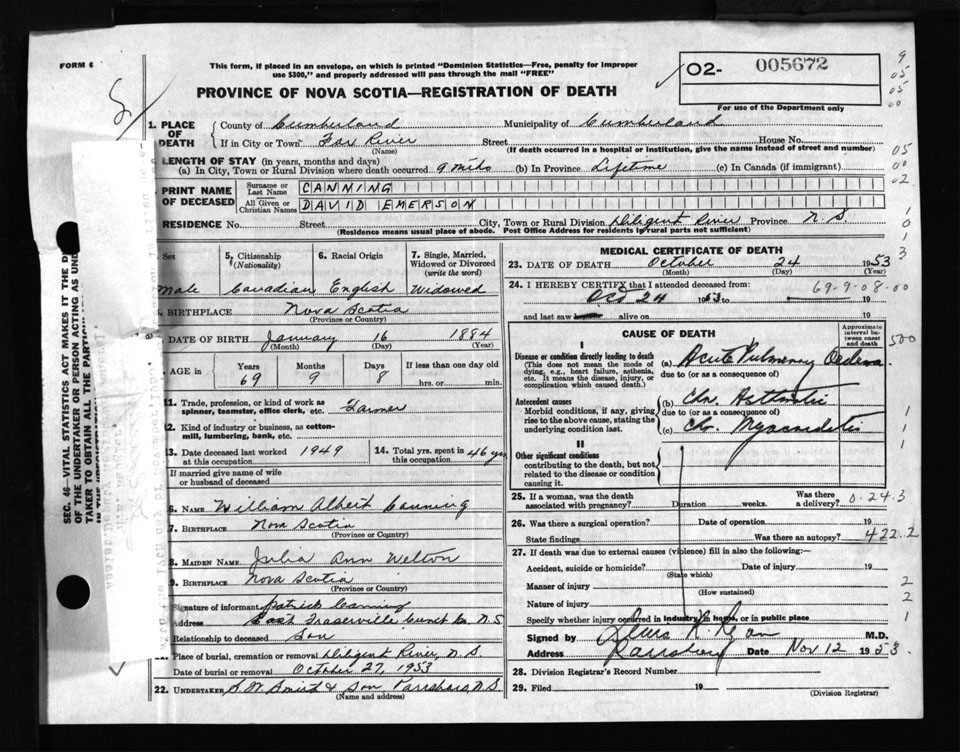 FORM 6
This form, if placed in an envelope, on which is printed "Dominion Statistics—Free, penalty for improper
use $300," and properly addressed will pass through the mail "FREE"
PROVINCE OF NOVA SCOTIA—REGISTRATION OF DEATH
O2- 005672
For use of the Department only
1. PLACE OF DEATH
County of Cumberland Municipality of Cumberland
If in City or Town Fox River Street House No.
(Name) (If death occurred in a hospital or institution, give the name instead of street and number)
LENGTH OF STAY (in years, months and days)
(a) In City, Town or Rural Division where death occurred 9 (b) In Province Lifetime (c) In Canada (if immigrant)
PRINT NAME OF DECEASED
Surname or Last Name CANNING
All Given or Christian Names DAVID EMERSON
RESIDENCE No. Street City, Town or Rural Division Diligent River Province N.S.
(Residence means usual place of abode. Post Office Address for residents in rural parts not sufficient)
Sex
5. Citizenship (Nationality)
6. Racial Origin
7. Single, Married, Widowed or Divorced (write the word)
Male Canadian English Widowed
BIRTHPLACE Nova Scotia
(Province or Country)
DATE OF BIRTH January 16 1884
(Month) (Day) (Year)
AGE in Years Months Days If less than one day old
69 9 8 hrs. or min.
11. Trade, profession, or kind of work as
spinner, teamster, office clerk, etc. Farmer
12. Kind of industry or business, as cotton-
mill, lumbering, bank, etc.
13. Date deceased last worked at this occupation 1949
14. Total yrs. spent in this occupation 46 yrs
If married give name of wife
or husband of deceased
6. NAME William Albert Canning
7. BIRTHPLACE Nova Scotia
(Province or Country)
8. MAIDEN NAME Julia Ann Welton
9. BIRTHPLACE Nova Scotia
(Province or Country)
Signature of informant Patrick Canning
Address East Fraserville Co. N.S
Relationship to deceased Son
21. Place of burial, cremation or removal Diligent River, N.S.
Date of burial or removal October 27, 1953
22. UNDERTAKER S.W. Smith & Son Parrsboro, N.S.
(Name and address)
MEDICAL CERTIFICATE OF DEATH
23. DATE OF DEATH October 24 1953
(Month) (Day) (Year)
24. I HEREBY CERTIFY that I attended deceased from:
Oct 24 1953 to 19
69-9-08-00
and last saw alive on 19
CAUSE OF DEATH
Approximate interval between onset and death
I
Disease or condition directly leading to death
(This does not mean the mode of
dying, e.g., heart failure, asthenia,
etc. It means the disease, injury, or
complication which caused death.)
(a) Acute Pulmonary Oedema
due to (or as a consequence of)
Antecedent causes
Morbid conditions, if any, giving
rise to the above cause, stating the
underlying condition last.
(b) Chr.
due to (or as a consequence of)
(c) Ch. Myocarditis
II
Other significant conditions
contributing to the death, but not
related to the disease or condition
causing it.
25. If a woman, was the death
associated with pregnancy? Duration weeks. Was there a delivery?
0.24.3
26. Was there a surgical operation? Date of operation 19
State findings Was there an autopsy?
422.2
27. If death was due to external causes (violence) fill in also the following:—
Accident, suicide or homicide? Date of injury 19
(State which)
Manner of injury
(How sustained)
Nature of injury
Specify whether injury occurred in industry, in home, or in public place
Signed by M.D.
Address Date Nov 12 1953.
28. Division Registrar's Record Number
29. Filed 19
(Division Registrar)
SEC. 46—VITAL STATISTICS ACT MAKES IT THE
OF THE UNDERTAKER OR PERSON ACTING AS
TAKER TO OBTAIN ALL THE